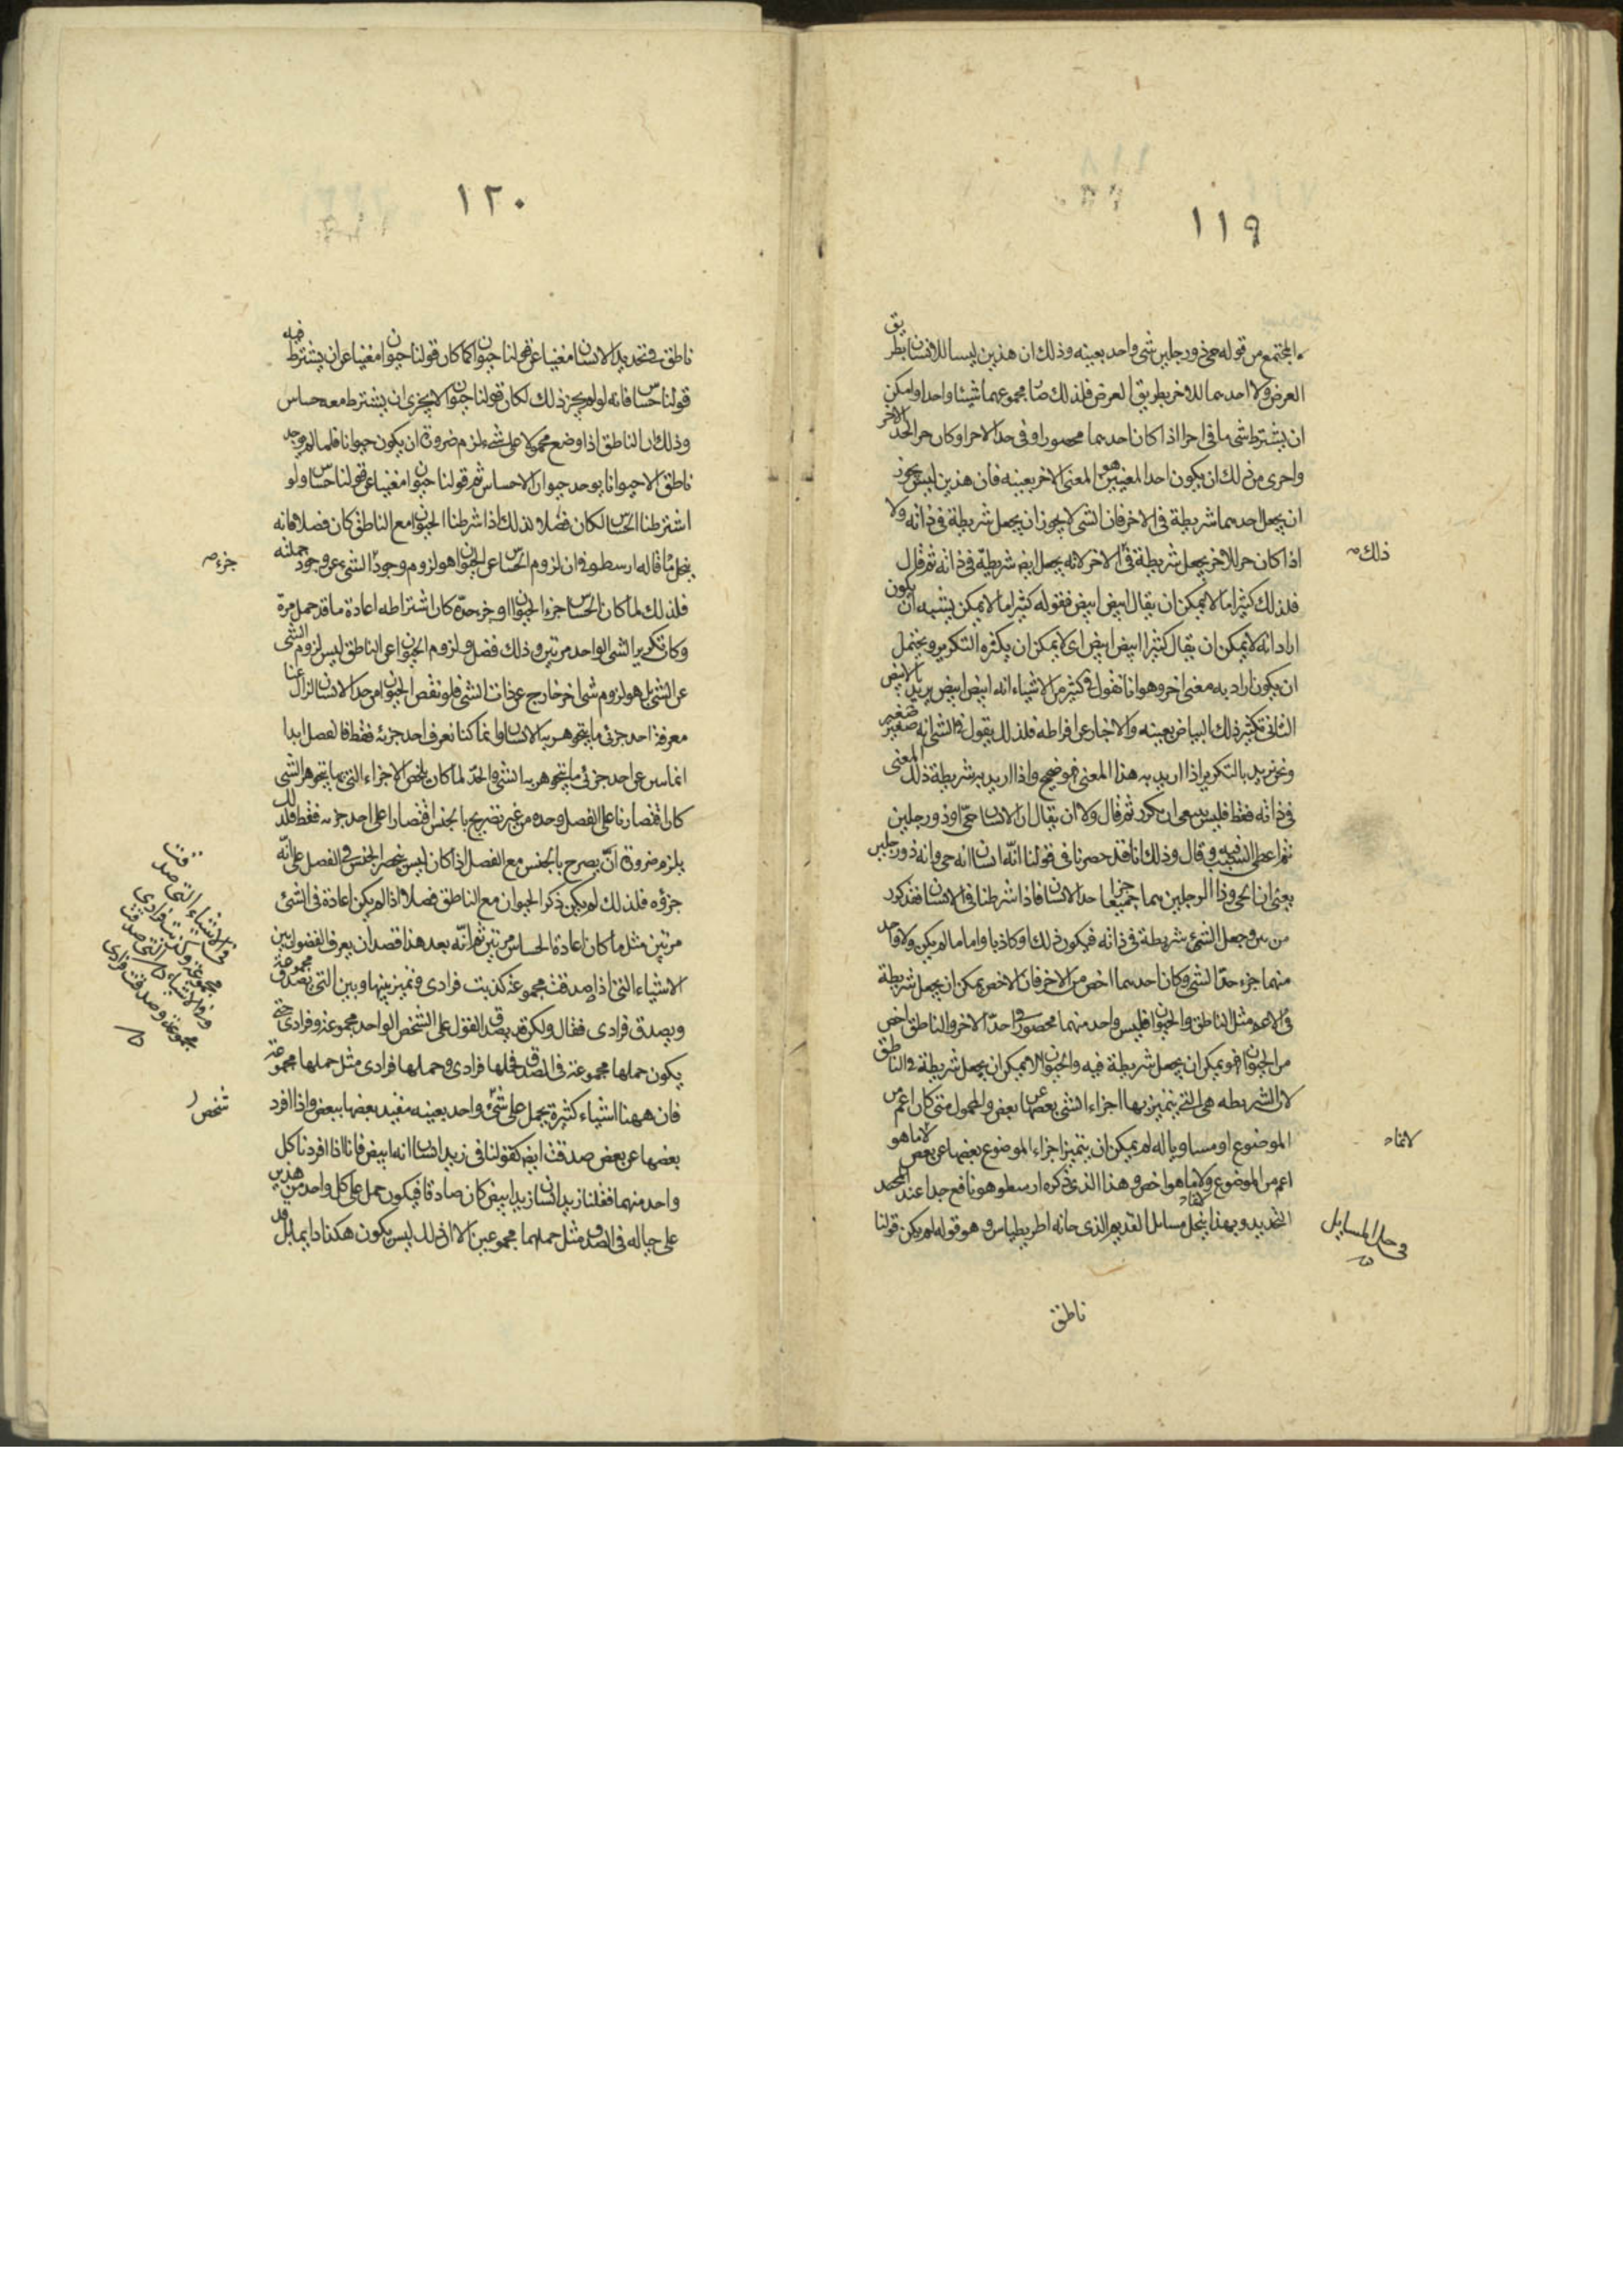 ١١٩
المجتمع من قوله حى ذو رجلين شى واحد بعينه وذلك ان هذين ليسا للانسان بطريق
العرض ولا احدهما للاخر بطريق العرض فلذلك صار مجموعهما شيئا واحدا وامكن
ان يشترط شى ما فى اذا كان احدهما محصورا فى حد الاخر او كان جزء الحد الاخر
واحرى من ذلك ان يكون احد المعنيين هو المعنى الاخر بعينه فان هذين ليس يجوز
ان يجعل احدهما شريطة فى الاخر فان الشى لا يجوز ان يجعل شريطة فى ذاته ولا
اذا كان جزءا للاخر يجعل شريطة فى الاخر لانه يجعل ايضا شريطة فى ذاته ثم قال
فلذلك كثيرا ما لا يمكن ان يقال ابيض ابيض فقوله كثيرا ما لا يمكن يشبه ان يكون
اراد انه لا يمكن ان يقال كثيرا ابيض ابيض اى لا يمكن ان يكثر التكرير ويحتمل
ان يكون اراد به معنى اخر وهو انا نقول فى كثير من الاشياء انه ابيض ابيض يريد بالابيض
الثانى تكثير ذلك البياض بعينه والاخبار عن افراطه فلذلك يقول فى الشى انه صغير صغير
ونحن نريد بالتكرير اذا اريد به هذا المعنى فهو صحيح واذا اريد به شريطة ذلك المعنى
فى ذاته فقط فليس ان يكرر ثم قال ولا ان يقال ان الانسان حى او ذو رجلين
ثم اعطى السبب فيه وقال وذلك انا قد حصرنا فى قولنا انه انسان انه حى وانه ذو رجلين
يعنى ان الحى وذا الرجلين هما جميعا جزءا حد الانسان فاذا شرطنا فى الانسان فقد كرر
من يجعل الشئ شريطة فى ذاته فيكون ذلك او كاذبا واما ما لم يكن ولا واحد
منهما جزء حد الشى وكان احدهما اخص من الاخر فان الاخص يمكن ان يجعل شريطة
فى الاعم مثل الناطق والحيوان فليس واحد منهما محصورا فى حد الاخر والناطق اخص
من الحيوان فهو يمكن ان يجعل شريطة فيه والحيوان لا يمكن ان يجعل شريطة فى الناطق
لان الشريطه هى التى يتميز بها اجزاء الشى بعضها عن بعض والمحمول متى كان اعم من
الموضوع او مساويا له لم يمكن ان يتميز اجزاء الموضوع بعضها عن بعض لا ما هو
اعم من الموضوع ولا ما هو اخص وهذا الذى ذكره ارسطو هو نافع جدا عند
التحديد وبهذا ينحل مسايل القديم الذى وهو قوله لم يكن قولنا
ناطق
ذلك
فى حل المسايل
١٢٠
ناطق فى تحديد الانسان مغنيا عن قولنا حيوان كما كان قولنا حيوان مغنيا عن ان يشترط فيه
قولنا حساس فانه لو لم يجز ذلك لكان قولنا حيوان لا يجزى ان يشترط معه حساس
وذلك ان الناطق اذا وضع محمولا على شىء لزم ضرورة ان يكون حيوانا فلما لم يوجد
ناطق الا حيوانا يوجد حيوان الا حساس ثم قولنا حيوان مغنيا عن قولنا حساس ولو
اشترطنا الحساس لكان فضلا لذلك اذا شرطنا الحيوان مع الناطق كان فضلا فانه
ينحل ما قاله ارسطو فى ان لزوم الحساس عن الحيوان هو لزوم وجود الشىء عن وجود جملته
فلذلك لما كان الحساس جزء الحيوان او جزء حده كان اشتراطه اعادة ما قد حمل مرة
وكان تكرير الشى الواحد مرتين وذلك فضل ولزوم الحيوان عن الناطق ليس لزوم الشى
عن الشى بل هو لزوم شى اخر خارج عن ذات الشى فلو نقص الحيوان من حد الانسان لزال عنا
معرفة احد جزئى ما يتجوهر به الانسان وانما كنا نعرف احد جزئه فقط فالفصل ابدا
انما عن احد جزئى ما يتجوهر به الشى والحد لما كان يلخص الاجزاء التى بها يتجوهر الشى
كان اقتصارنا على الفصل وحده من غير تصريح بالجنس اقتصارا على احد جزيه فقط فلذلك
يلزم ضرورة ان يصرح بالجنس مع الفصل اذا كان ليس ينحصر الجنس فى الفصل على انه
جزؤه فلذلك لم يكن ذكر الحيوان مع الناطق فضلا اذا لم يكن اعادة فى الشئ
مرتين مثل ما كان اعادة الحساس مرتين ثم انه بعد هذا قصد ان يعرف الفصول بين
الاشياء التى اذا صدقت مجموعة كذبت فرادى فتميز بينها وبين التى تصدق مجموعة
ويصدق فرادى فقال ولكن قد يصدق القول على الشخص الواحد مجموعة وفرادى حتى
يكون حملها مجموعة فى الصدق فحملها فرادى وحملها فرادى مثل حملها مجموعة
فان ههنا اشياء كثيرة يحمل على شئ واحد بعينه مقيد بعضها ببعض واذا افرد
بعضها عن بعض صدقت ايضا كقولنا فى زيد انسان انه ابيض فانا اذا افردنا كل
واحد منهما فقلنا زيد انسان زيد ابيض كان صادقا فيكون حمل على كل واحد من هذين
على حياله فى الصدق مثل حملهما مجموعين الا ان ذلك ليس يكون هكذا دايما بل قد
جزء
فى الاشياء التى صدقت
مجموعة وكذبت فرادى
وفى الاشياء التى صدقت
مجموعة وصدقت فرادى
شخص